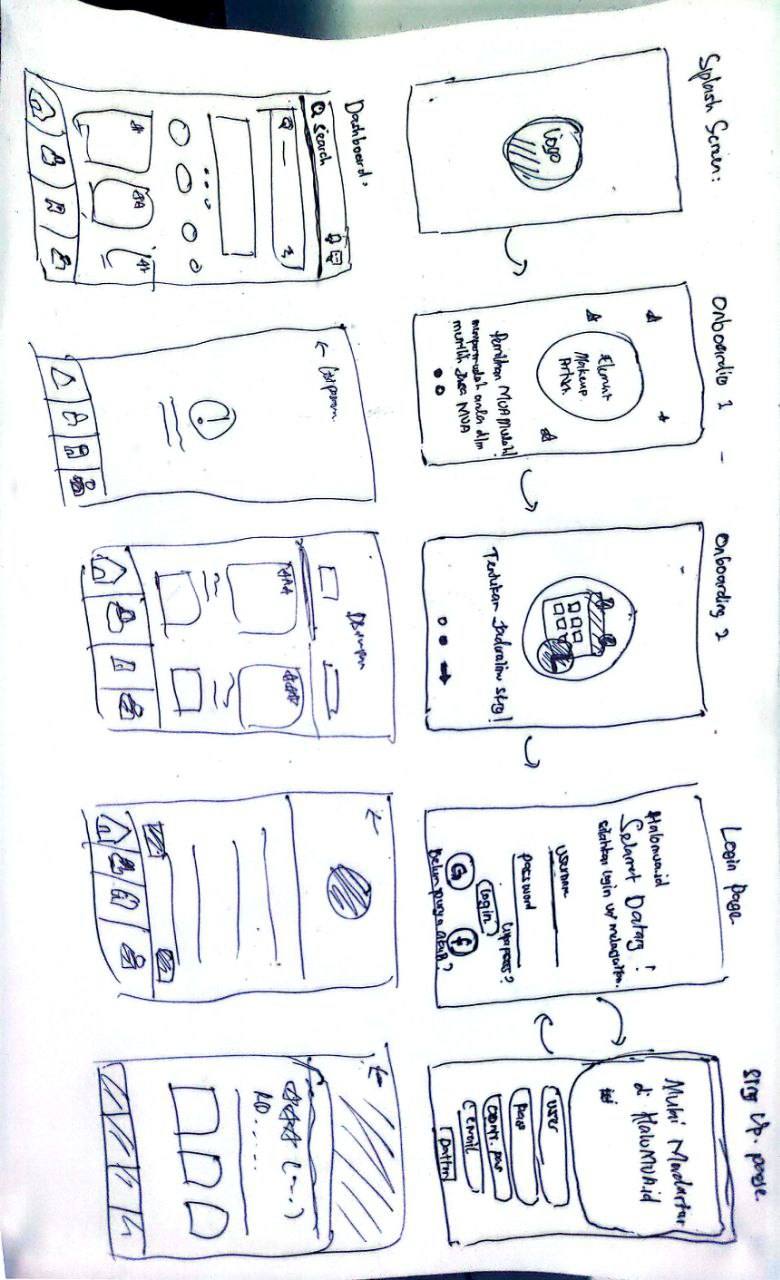 Splash Screen:
Logo
Onboardig 1
Element
Makeup
Artist
Pemilihan MUA Mudah!
mempermudah anda dlm
memilih Jasa MUA
Onboarding 2
Tentukan Jadwalmu skrg!
Login Page
Halomua.id
Selamat Datang!
silahkan login u/ melanjutkan.
username
password
Lupa pass?
Login
G
f
Belum punya akun?
Sing Up. page.
Mulai Mendaftar
di HaloMUA.id
user
pass
Conf. pas
email
Daftar
Dashboard.
Search
Disimpan
RD....